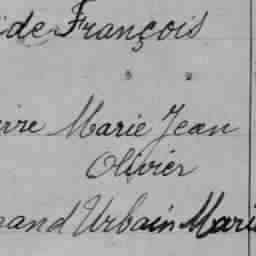 ide François
" "
rre Marie Jean
Olivier
mand Urbain Marie